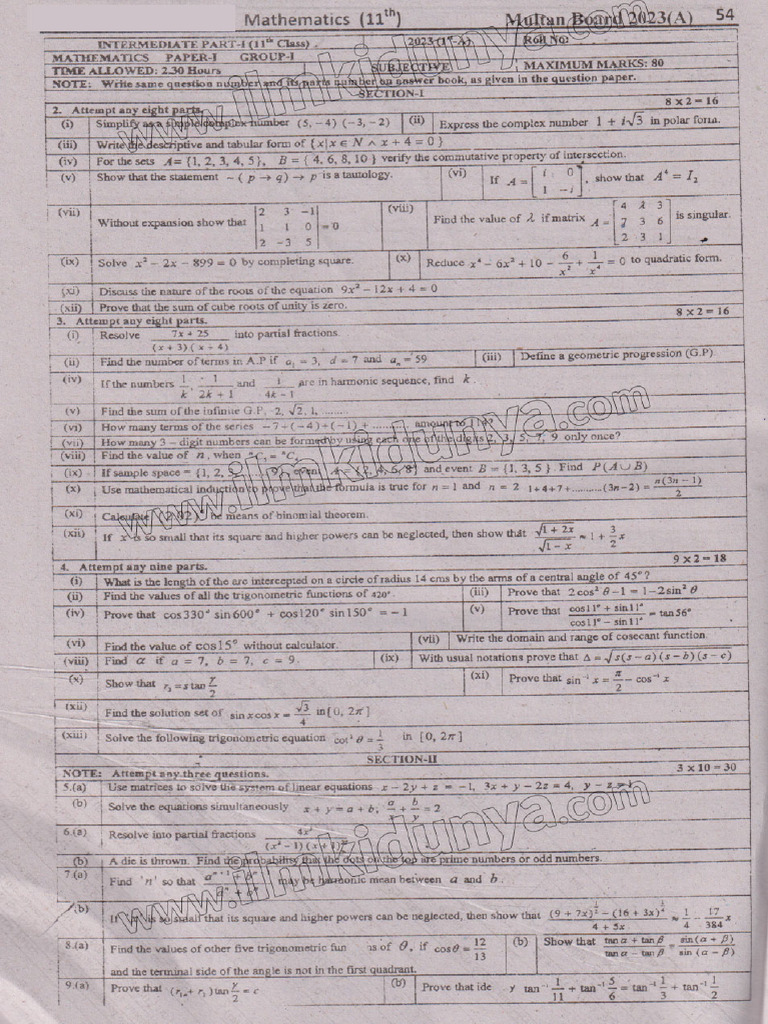 Mathematics (11th) Multan Board 2023(A) 54
INTERMEDIATE PART-I (11th Class) 2023 (1st-A) Roll No:
MATHEMATICS PAPER-I GROUP-I
TIME ALLOWED: 2.30 Hours SUBJECTIVE MAXIMUM MARKS: 80
NOTE: Write same question number and its parts number on answer book, as given in the question paper.
SECTION-I
2. Attempt any eight parts. 8 x 2 = 16
(i) Simplify as a simple complex number (5, −4) (−3, −2) (ii) Express the complex number 1 + i√3 in polar form.
(iii) Write the descriptive and tabular form of {x|x ∈ N ∧ x + 4 = 0}
(iv) For the sets A= {1, 2, 3, 4, 5}, B = { 4, 6, 8, 10 } verify the commutative property of intersection.
(v) Show that the statement ~ ( p → q) → p is a tautology. (vi) If A = [i 0; 1 −i], show that A⁴ = I₂
(vii) Without expansion show that |2 3 −1; 1 1 0; 2 −3 5| = 0 (viii) Find the value of λ if matrix A = [4 λ 3; 7 3 6; 2 3 1] is singular.
(ix) Solve x² − 2x − 899 = 0 by completing square. (x) Reduce x⁴ − 6x² + 10 − 6/x² + 1/x⁴ = 0 to quadratic form.
(xi) Discuss the nature of the roots of the equation 9x² − 12x + 4 = 0
(xii) Prove that the sum of cube roots of unity is zero.
3. Attempt any eight parts. 8 x 2 = 16
(i) Resolve (7x + 25)/((x + 3)(x + 4)) into partial fractions.
(ii) Find the number of terms in A.P if a₁ = 3, d = 7 and aₙ = 59 (iii) Define a geometric progression (G.P).
(iv) If the numbers 1/k, 1/(2k + 1) and 1/(4k − 1) are in harmonic sequence, find k.
(v) Find the sum of the infinite G.P, 2, √2, 1, ........
(vi) How many terms of the series −7 + (−4) + (−1) + ........ amount to 114?
(vii) How many 3 – digit numbers can be formed by using each one of the digits 2, 3, 5, 7, 9 only once?
(viii) Find the value of n, when
(ix) If sample space = {1, 2, 9}, event A = {2, 4, 6, 8} and event B = {1, 3, 5 }. Find P(A ∪ B)
(x) Use mathematical induction to prove that the formula is true for n = 1 and n = 2 1+4+7+..........(3n−2) = n(3n − 1)/2
(xi) Calculate by means of binomial theorem.
(xii) If x is so small that its square and higher powers can be neglected, then show that √(1 + 2x)/√(1 − x) ≈ 1 + 3/2 x
4. Attempt any nine parts. 9 x 2 = 18
(i) What is the length of the arc intercepted on a circle of radius 14 cms by the arms of a central angle of 45°?
(ii) Find the values of all the trigonometric functions of 420° (iii) Prove that 2cos² θ − 1 = 1 − 2sin² θ
(iv) Prove that cos330° sin600° + cos120° sin150° = −1 (v) Prove that (cos11° + sin11°)/(cos11° − sin11°) = tan56°
(vi) Find the value of cos15° without calculator. (vii) Write the domain and range of cosecant function.
(viii) Find α if a = 7, b = 7, c = 9. (ix) With usual notations prove that Δ = √s(s − a)(s − b)(s − c)
(x) Show that r₃ = s tan γ/2 (xi) Prove that sin⁻¹ x = π/2 − cos⁻¹ x
(xii) Find the solution set of sin x cos x = √3/4 in [0, 2π]
(xiii) Solve the following trigonometric equation cot² θ = 1/3 in [0, 2π]
SECTION-II
NOTE: Attempt any three questions. 3 x 10 = 30
5.(a) Use matrices to solve the system of linear equations x − 2y + z = −1, 3x + y − 2z = 4, y − z = 1
(b) Solve the equations simultaneously x + y = a + b, a/x + b/y = 2
6.(a) Resolve into partial fractions
(b) A die is thrown. Find the probability that the dots on the top are prime numbers or odd numbers.
7.(a) Find 'n' so that may be harmonic mean between a and b.
(b) If x is so small that its square and higher powers can be neglected, then show that ((9 + 7x)^½ − (16 + 3x)^¼)/(4 + 5x) ≈ 1/4 − 17/384 x
8.(a) Find the values of other five trigonometric fun ns of θ, if cosθ = 12/13 (b) Show that (tan α + tan β)/(tan α − tan β) = sin(α + β)/sin(α − β)
and the terminal side of the angle is not in the first quadrant.
9.(a) Prove that tan γ/2 = c (b) Prove that ide y tan⁻¹ 1/11 + tan⁻¹ 5/6 = tan⁻¹ 1/3 + tan⁻¹ 1/2
www.ilmkidunya.com
www.ilmkidunya.com
www.ilmkidunya.com